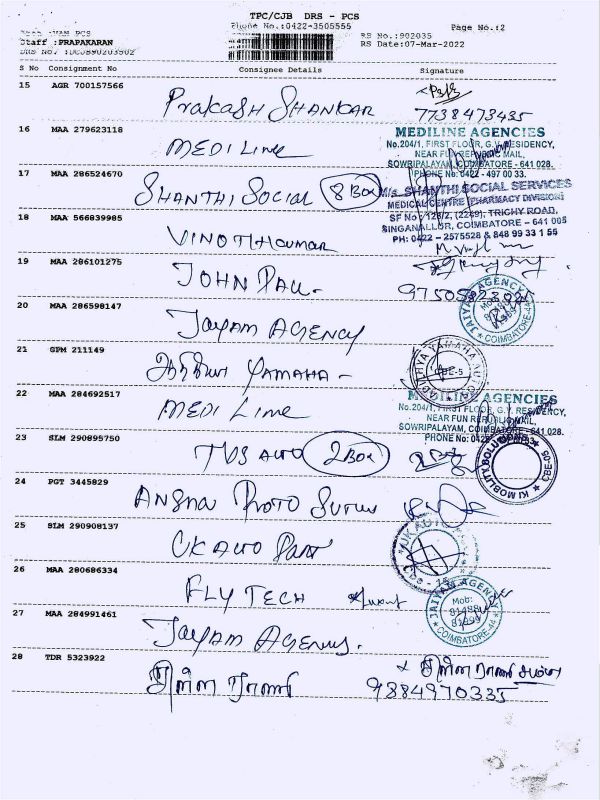 TPC/CJB DRS - PCS
Phone No.:0422-3505555
Page No.:2
PCS
Staff :PRAPAKARAN
RS No.:902035
RS Date:07-Mar-2022
DRS No. :DCJB90203502
S No Consignment No Consignee Details Signature
15 AGR 700157566
Prakash Shankar 7738473435
16 MAA 279623118
MEDI Line
MEDILINE AGENCIES
No.204/1, FIRST FLOOR, G.V. RESIDENCY,
NEAR FUN REPUBLIC MAIL,
SOWRIPALAYAM, COIMBATORE - 641 028.
PHONE No: 0422 - 497 00 33.
17 MAA 286524670
SHANTHI SOCIAL 8 Box
M/s. SHANTHI SOCIAL SERVICES
MEDICAL CENTRE (PHARMACY DIVISION)
SF No : 128/2, (2269), TRICHY ROAD,
SINGANALLUR, COIMBATORE - 641 005
PH: 0422 - 2575528 & 848 99 33 1 55
18 MAA 566839985
VINOTHKUMAR
19 MAA 286101275
JOHN PAUL
20 MAA 286598147
Jayam Agency
JAIYAM AGENCY
COIMBATORE-44
21 GPM 211149
YAMAHA
CBE-5
22 MAA 284692517
MEDI Line
MEDILINE AGENCIES
No.204/1, FIRST FLOOR, G.V. RESIDENCY,
NEAR FUN REPUBLIC MAIL,
SOWRIPALAYAM, COIMBATORE - 641 028.
PHONE No: 0422
23 SLM 290895750
TVS AUTO 2 Box
CBE-05
24 PGT 3445829
Photo
25 SLM 290908137
UK Auto Part
UK AUTO
26 MAA 280686334
FLY TECH
27 MAA 284991461
Jayam Agency.
JAIYAM AGENCY
Mob:
COIMBATORE-44
28 TDR 5323922
சின்ன ராணி
சின்ன ராணி
9884970335